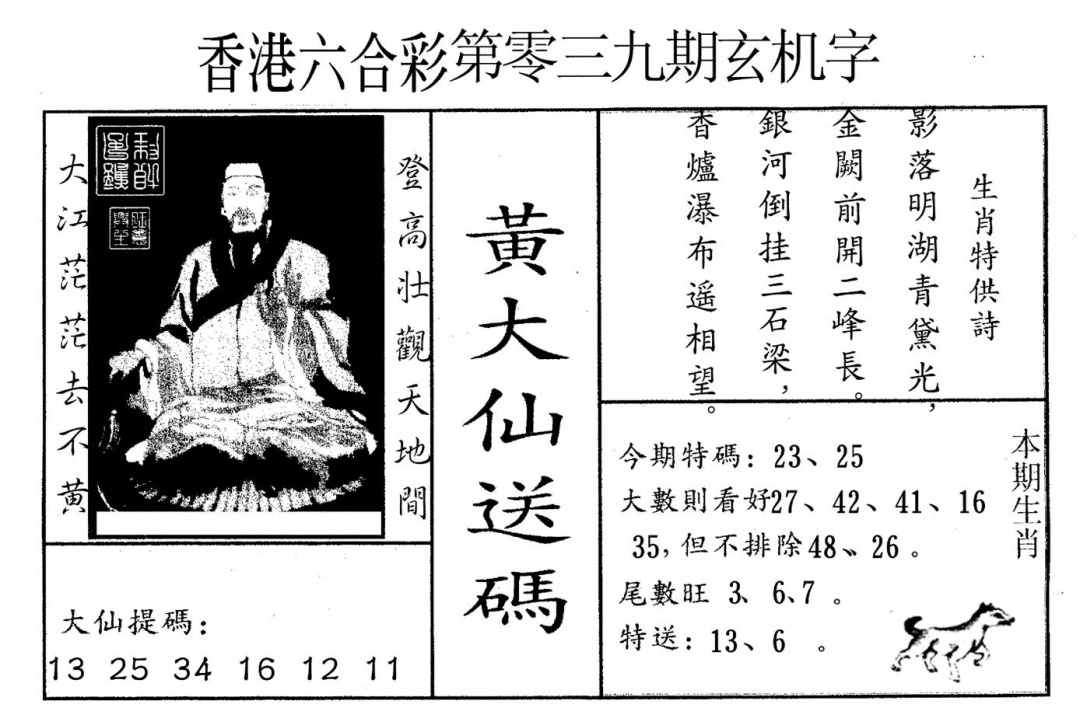 香港六合彩第零三九期玄机字
登高壯觀天地間
大江茫茫去不黃
黃大仙送碼
生肖特供詩
影落明湖青黛光，
金闕前開二峰長。
銀河倒挂三石梁，
香爐瀑布遥相望。
本期生肖
今期特碼：23、25
大數則看好27、42、41、16
35，但不排除48、26。
尾數旺 3、6、7。
特送：13、6 。
大仙提碼：
13 25 34 16 12 11